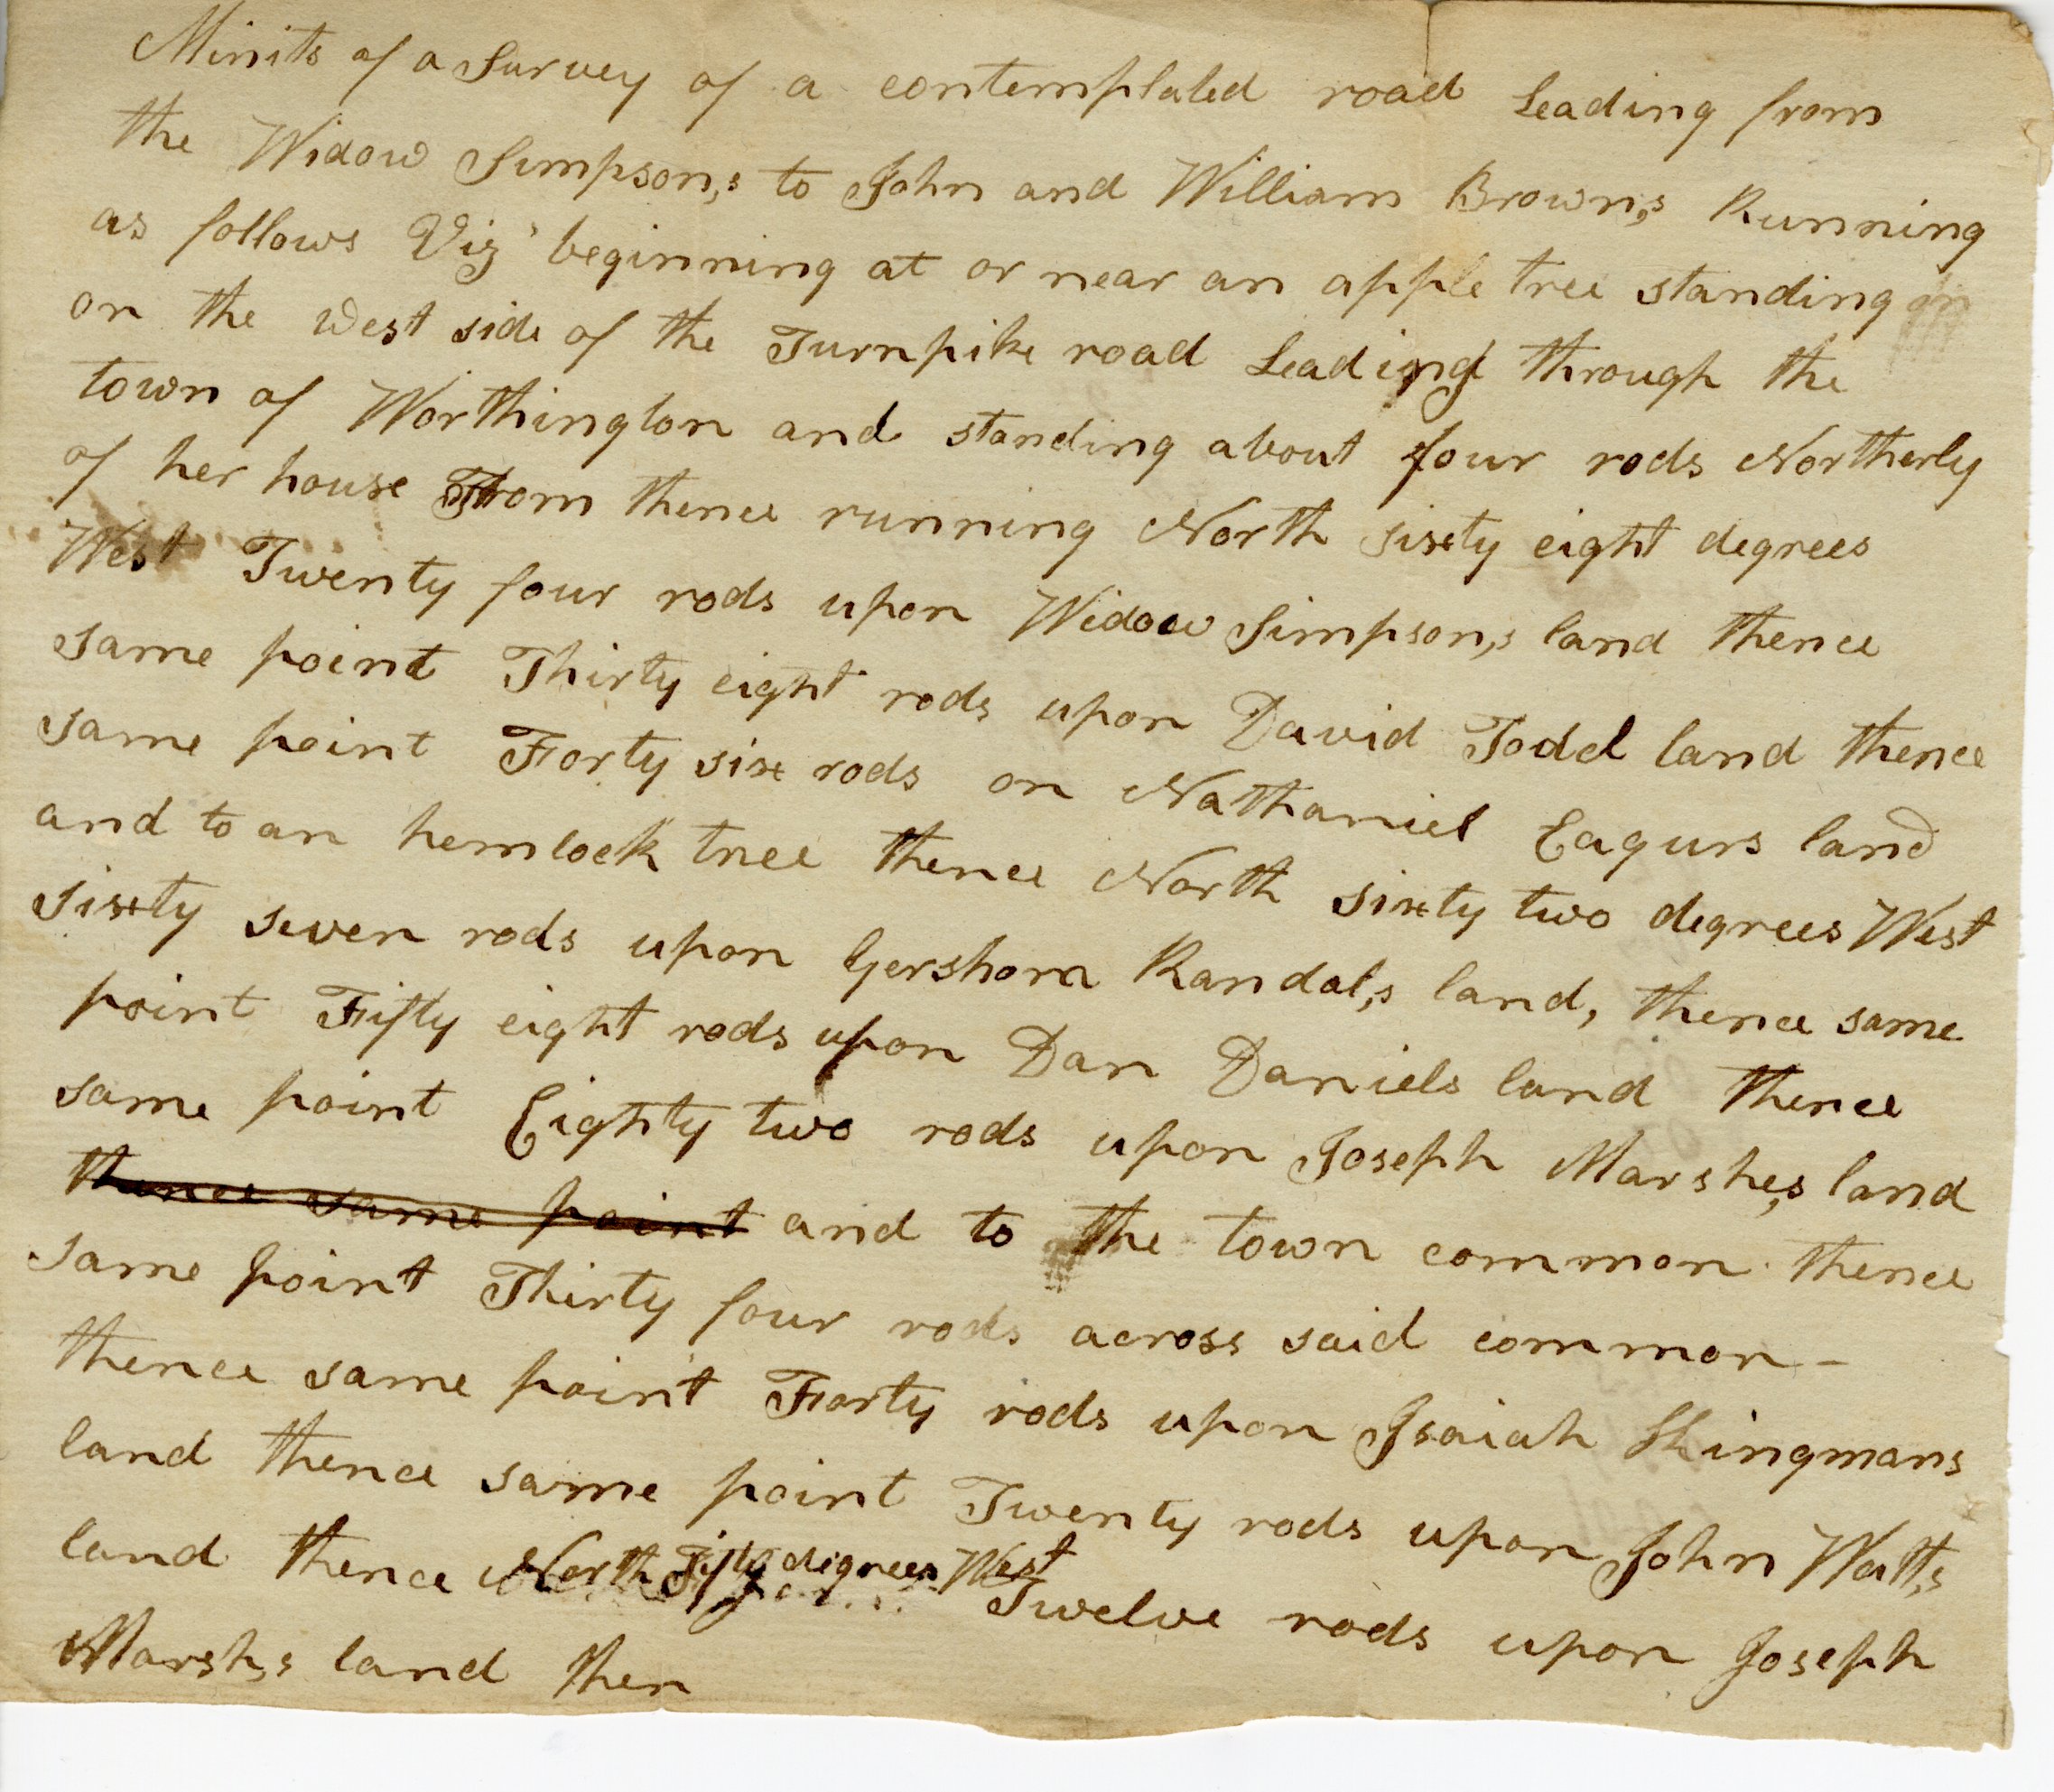 Minits of a Survey of a contemplated road Leading from
the Widow Simpson,s to John and William Brown,s Running
as follows Viz' beginning at or near an apple tree standing
on the west side of the Turnpike road Leading through the
town of Worthington and standing about four rods Northerly
of her house From thence running North sixty eight degrees
West Twenty four rods upon Widow Simpson,s land thence
same point Thirty eight rods upon David Todd land thence
same point Forty six rods on Nathaniel Eagurs land
and to an hemlock tree thence North sixty two degrees West
sixty seven rods upon Gershom Randal,s land, thence same
point Fifty eight rods upon Dan Daniels land thence
same point Eighty two rods upon Joseph Marshe,s land
thence same point and to the town common thence
same point Thirty four rods across said common -
thence same point Forty rods upon Isaiah Kingmans
land thence same point Twenty rods upon John Watt,s
land thence North Fifty degrees West Twelve rods upon Joseph
Marsh,s land then